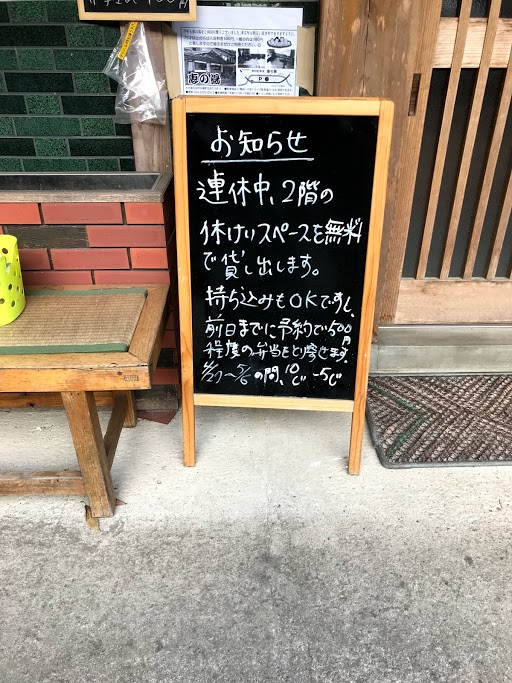 恵の湯
お知らせ
連休中、2階の
休けいスペースを無料
で貸し出します。
持ち込みもOKですし、
前日までに予約で500円
程度の弁当をとり寄せます。
4/27〜5/6の間、10じ-5じ